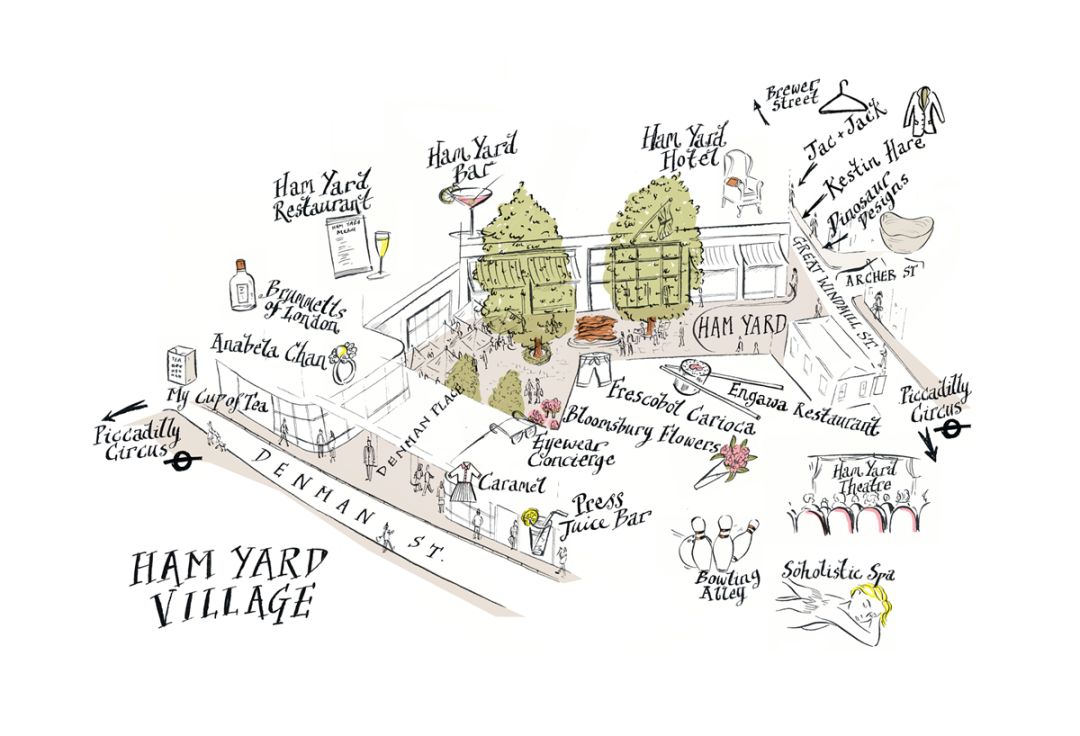 Brewer
Street
Jac + Jack
Kestin Hare
Dinosaur
Designs
Ham Yard
Hotel
Ham Yard
Bar
Ham Yard
Restaurant
HAM YARD
Brummetts
of London
Anabela Chan
My Cup of Tea
TEA
Piccadilly
Circus
DENMAN ST.
DENMAN PLACE
HAM YARD
GREAT WINDMILL ST.
ARCHER ST
Frescobol Carioca
Engawa Restaurant
Bloomsbury Flowers
Eyewear
Concierge
Caramel
Press
Juice Bar
Piccadilly
Circus
Ham Yard
Theatre
Bowling
Alley
Soholistic Spa
HAM YARD
VILLAGE